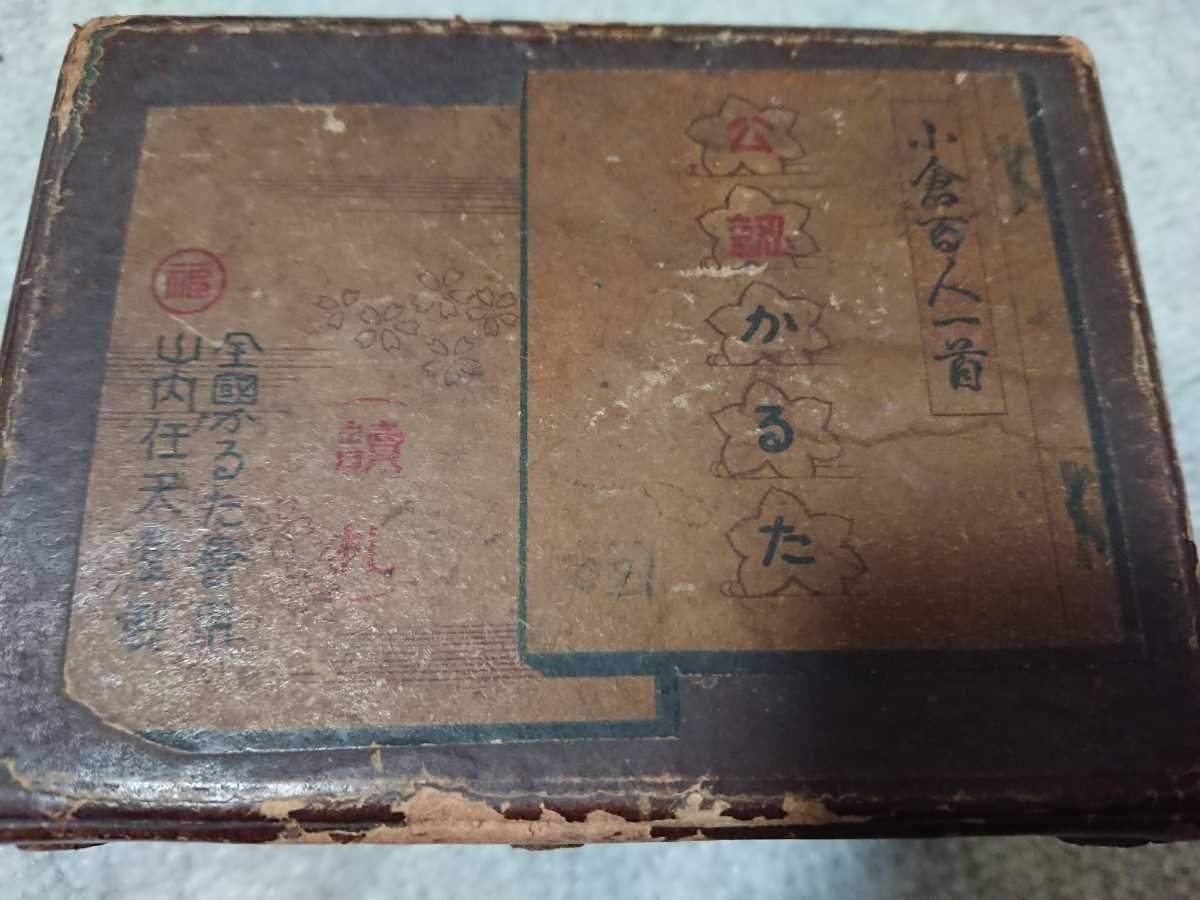 小倉百人一首
公認かるた
(讀札)
福
全國かるた會具
山内任天堂製